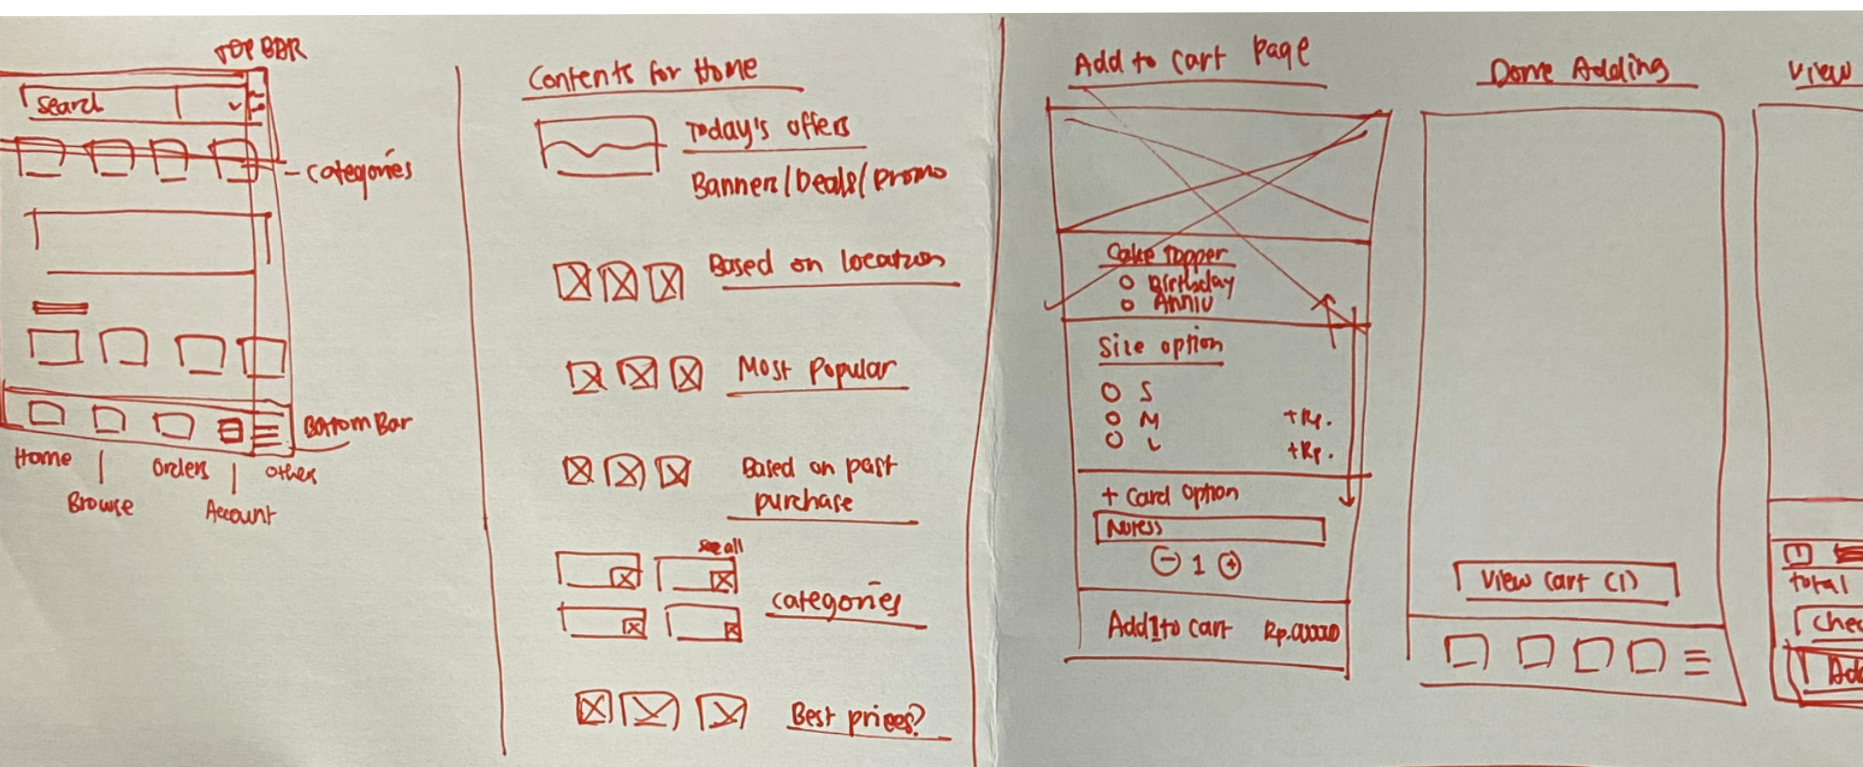 TOP BAR
Search
categories
Batom Bar
Home
Orders
other
Browse
Account
Contents for Home
Today's offers
Banners/Deals/promo
Based on location
Most Popular
Based on past
purchase
see all
categories
Best prices?
Add to cart page
Cake Topper
Birthday
Anniv
Size option
S
M +Rp.
L +Rp.
+ card option
Notess
- 1 +
Add 1 to cart Rp.00000
Done Adding
View cart (1)
View
total
Chec
Add